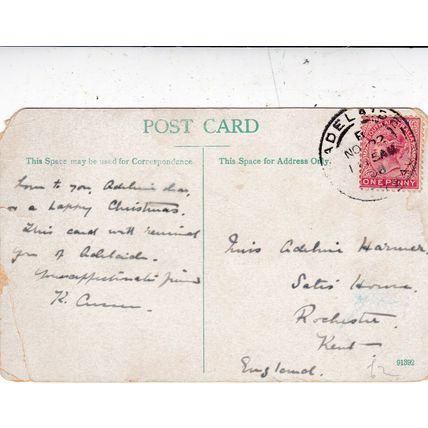 POST CARD
This Space may be used for Correspondence.
This Space for Address Only.
ADELAIDE
NO 22
ONE PENNY
Love to you, Adeline dear,
& a happy Christmas.
This card will remind
you of Adelaide.
Your affectionate friend
K.
Miss Adeline Harmer
Satis House
Rochester
Kent
England.
91392